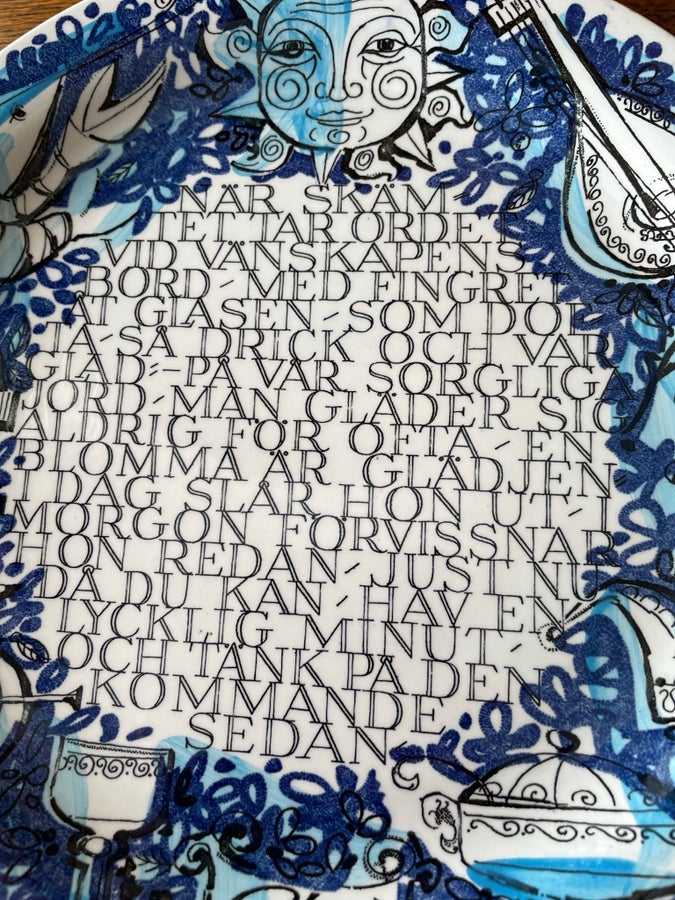 NÄR SKÄM-
TET TAR ORDET
VID VÄNSKAPENS
BORD - MED FINGRET
ÅT GLASEN - SOM DOF-
TA - SÅ DRICK OCH VAR
GLAD - PÅ VÅR SORGLIGA
JORD - MAN GLÄDER SIG
ALDRIG FÖR OFTA - EN
BLOMMA ÄR GLÄDJEN
I DAG SLÅR HON UT - I
MORGON FÖRVISSNAR
HON REDAN - JUST NU
DÅ DU KAN - HAV EN
LYCKLIG MINUT -
OCH TÄNK PÅ DEN
KOMMANDE
SEDAN